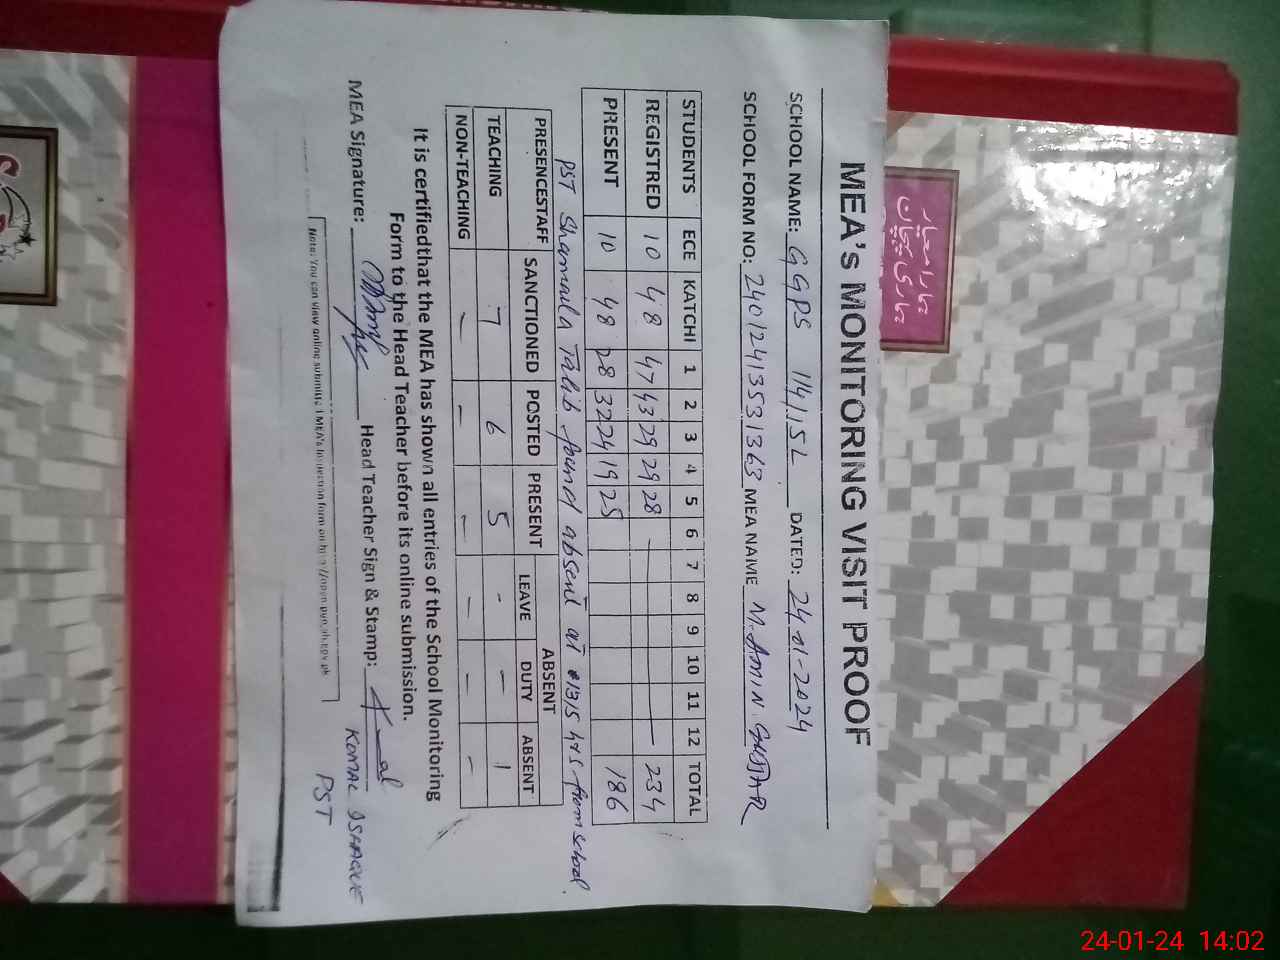 MEA's MONITORING VISIT PROOF
SCHOOL NAME: GGPS 114/15L DATED: 24-01-2024
SCHOOL FORM NO: 24012413531363 MEA NAME M. AMIN GUJJAR
STUDENTS ECE KATCHI 1 2 3 4 5 6 7 8 9 10 11 12 TOTAL
REGISTRED 10 48 47 43 29 29 28 234
PRESENT 10 48 28 32 24 19 25 186
PST Shamaila Talib found absent at 1315 hrs from school.
PRESENCESTAFF SANCTIONED POSTED PRESENT ABSENT
LEAVE DUTY ABSENT
TEACHING 7 6 5 - - 1
NON-TEACHING - - - - - -
It is certifiedthat the MEA has shown all entries of the School Monitoring
Form to the Head Teacher before its online submission.
MEA Signature: Head Teacher Sign & Stamp:
KOMAL ISHAQUE
PST
Note: You can view online submitted MEA's Inspection form on
ہمارا معیار
ہماری پہچان
24-01-24 14:02